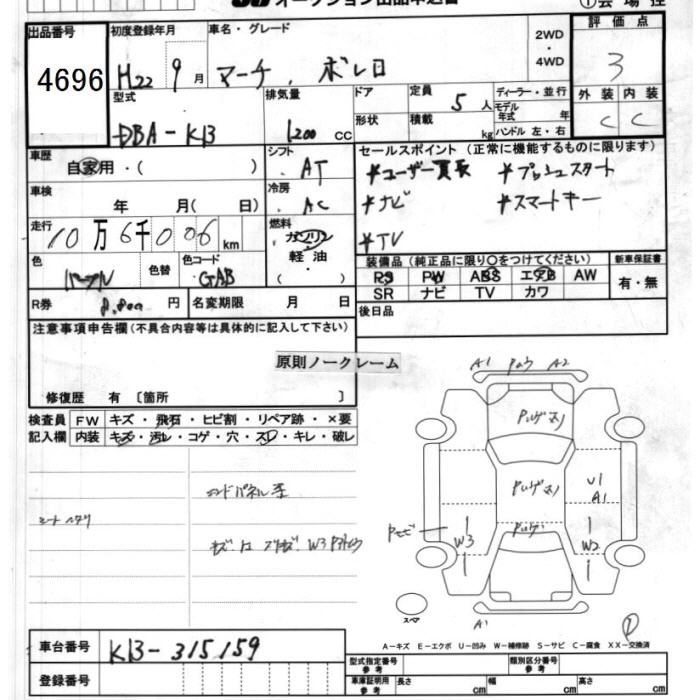 オークション出品申込書
①会場控
出品番号 初度登録年月 車名・グレード 2WD・4WD 評価点
4696 H22 9月 マーチ ボレロ 3
型式 排気量 ドア 定員 ディーラー・並行 外装 内装
DBA-K13 1200 cc 形状 5人 モデル年式 年 C C
積載 kg ハンドル 左・右
車歴 シフト セールスポイント (正常に機能するものに限ります)
自家用・( ) AT *ユーザー買取 *プッシュスタート
車検 冷房 *ナビ *スマートキー
年 月( 日) AC
走行 燃料 *TV
10万6千006km ガソリン・軽油 ( )
色 色替 色コード 装備品 (純正品に限り○をつけてください) 新車保証書
パープル GAB RS PW ABS エアB AW 有・無
R券 円 名変期限 月 日 SR ナビ TV カワ
後日品
注意事項申告欄 (不具合内容等は具体的に記入して下さい)
原則ノークレーム
修復歴 有 [箇所 ]
検査員 FW キズ・飛石・ヒビ割・リペア跡・×要
記入欄 内装 キズ・汚レ・コゲ・穴・スレ・キレ・破レ
A1 A2
U1
A1
W3 W2
A1
スペア
A-キズ E-エクボ U-凹み W-補修跡 S-サビ C-腐食 XX-交換済
車台番号 K13-315159
登録番号
型式指定番号 参考 類別区分番号 参考
車庫証明用 参考 長さ cm 幅 cm 高さ cm